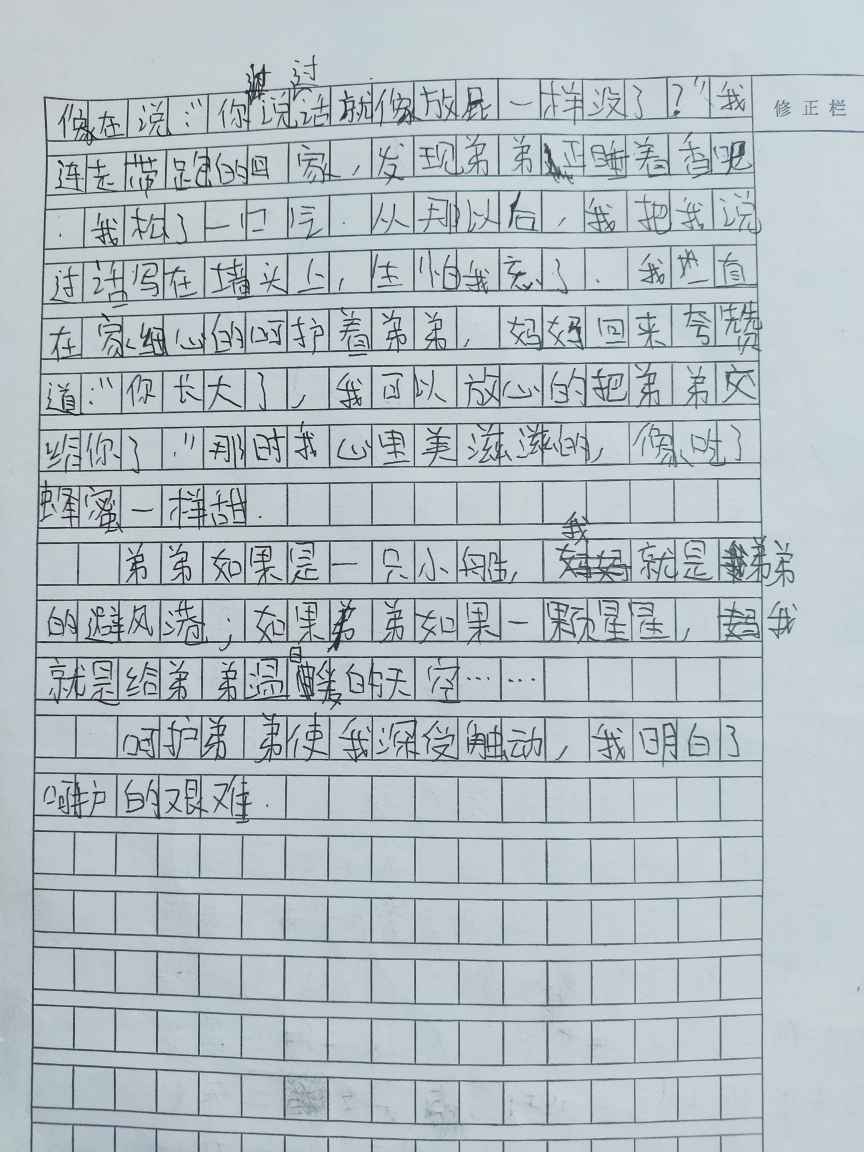 过
像在说:"你说话就像放屁一样没了?"我
修正栏
连走带跑的回家,发现弟弟正睡着香呢
.我松了一口气.从那以后,我把我说
过话写在墙头上,生怕我忘了.我一直
在家细心的呵护着弟弟,妈妈回来夸赞
道:"你长大了,我可以放心的把弟弟交
给你了."那时我心里美滋滋的,像吃了
蜂蜜一样甜.
我
弟弟如果是一只小船,就是弟弟
的避风港;如果弟弟如果一颗星星,我
就是给弟弟温暖的天空……
呵护弟弟使我深受触动,我明白了
呵护的艰难.